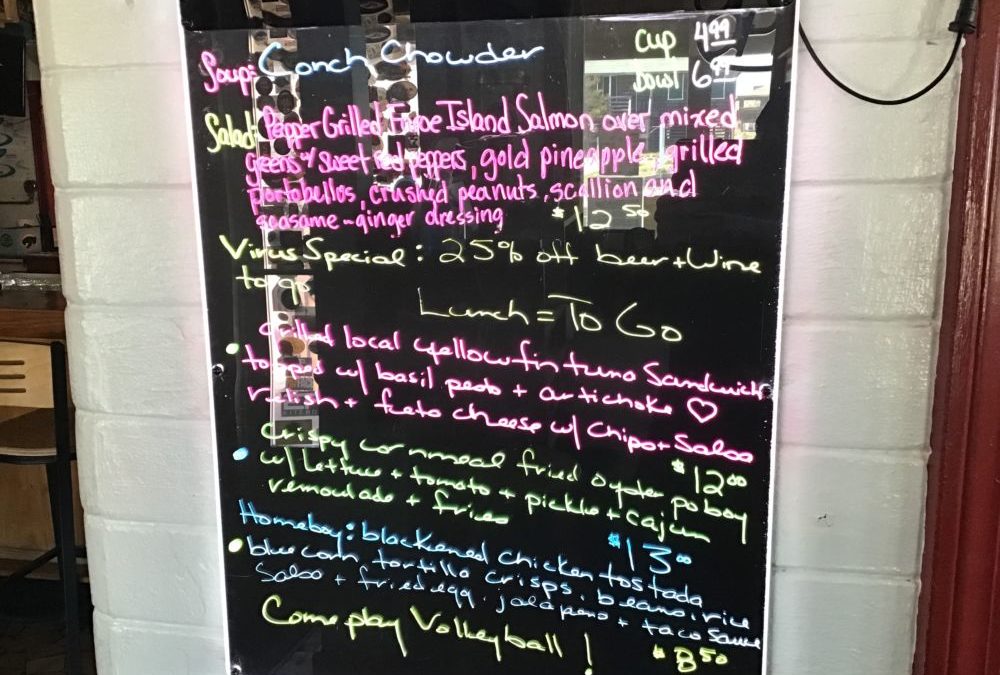 Soup: Conch Chowder cup 4.99
Bowl 6.99
Salad: Pepper Grilled Faroe Island Salmon over mixed
greens w/ sweet red peppers, gold pineapple, grilled
portobellos, crushed peanuts, scallion and
seasame-ginger dressing $12.50
Virus Special: 25% off beer + Wine
to go
Lunch = To Go
Grilled local yellowfin tuna Sandwich
topped w/ basil pesto + artichoke ♡
relish + feta cheese w/ Chips + Salsa
$12.00
Crispy cornmeal fried oyster poboy
w/ Lettuce + tomato + pickle + cajun
remoulade + fries
$13.00
Homeboy: blackened chicken tostada
blue corn tortilla crisps, beans, rice
Salsa + fried egg, jalapeno + taco sauce
$8.50
Come play Volleyball!